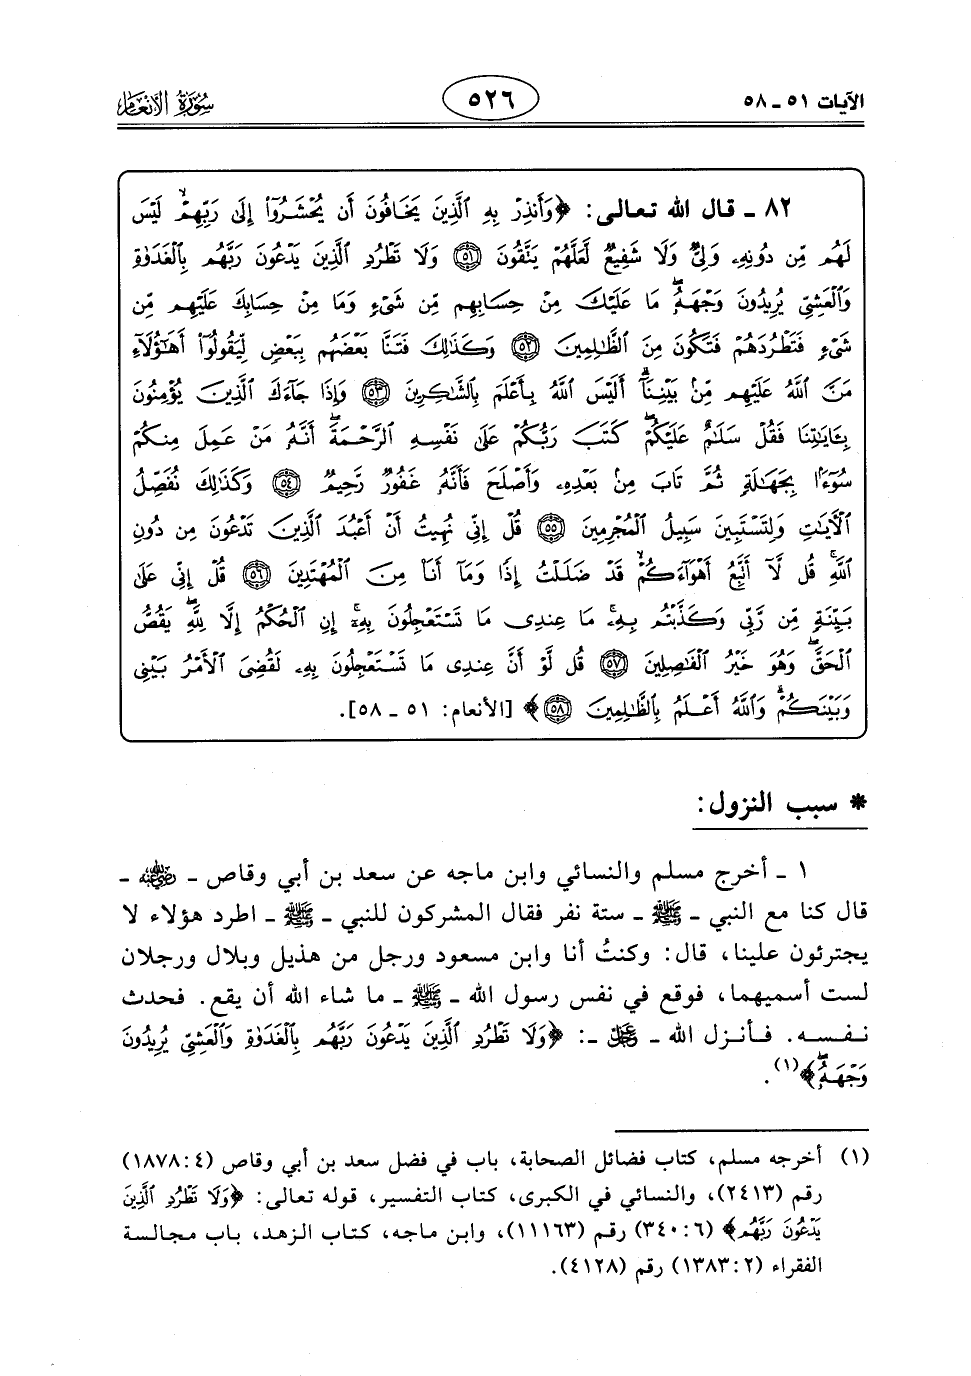 الآيات ٥١ ـ ٥٨
٥٢٦
سورة الأنعام
٨٢ ـ قال الله تعالى: ﴿وَأَنذِرْ بِهِ ٱلَّذِينَ يَخَافُونَ أَن يُحْشَرُوٓا۟ إِلَىٰ رَبِّهِمْ ۙ لَيْسَ
لَهُم مِّن دُونِهِۦ وَلِىٌّ وَلَا شَفِيعٌ لَّعَلَّهُمْ يَتَّقُونَ ٥١ وَلَا تَطْرُدِ ٱلَّذِينَ يَدْعُونَ رَبَّهُم بِٱلْغَدَوٰةِ
وَٱلْعَشِىِّ يُرِيدُونَ وَجْهَهُۥ ۖ مَا عَلَيْكَ مِنْ حِسَابِهِم مِّن شَىْءٍ وَمَا مِنْ حِسَابِكَ عَلَيْهِم مِّن
شَىْءٍ فَتَطْرُدَهُمْ فَتَكُونَ مِنَ ٱلظَّٰلِمِينَ ٥٢ وَكَذَٰلِكَ فَتَنَّا بَعْضَهُم بِبَعْضٍ لِّيَقُولُوٓا۟ أَهَٰٓؤُلَآءِ
مَنَّ ٱللَّهُ عَلَيْهِم مِّنۢ بَيْنِنَآ ۗ أَلَيْسَ ٱللَّهُ بِأَعْلَمَ بِٱلشَّٰكِرِينَ ٥٣ وَإِذَا جَآءَكَ ٱلَّذِينَ يُؤْمِنُونَ
بِـَٔايَٰتِنَا فَقُلْ سَلَٰمٌ عَلَيْكُمْ ۖ كَتَبَ رَبُّكُمْ عَلَىٰ نَفْسِهِ ٱلرَّحْمَةَ ۖ أَنَّهُۥ مَنْ عَمِلَ مِنكُمْ
سُوٓءًۢا بِجَهَٰلَةٍ ثُمَّ تَابَ مِنۢ بَعْدِهِۦ وَأَصْلَحَ فَأَنَّهُۥ غَفُورٌ رَّحِيمٌ ٥٤ وَكَذَٰلِكَ نُفَصِّلُ
ٱلْءَايَٰتِ وَلِتَسْتَبِينَ سَبِيلُ ٱلْمُجْرِمِينَ ٥٥ قُلْ إِنِّى نُهِيتُ أَنْ أَعْبُدَ ٱلَّذِينَ تَدْعُونَ مِن دُونِ
ٱللَّهِ ۚ قُل لَّآ أَتَّبِعُ أَهْوَآءَكُمْ ۙ قَدْ ضَلَلْتُ إِذًا وَمَآ أَنَا۠ مِنَ ٱلْمُهْتَدِينَ ٥٦ قُلْ إِنِّى عَلَىٰ
بَيِّنَةٍ مِّن رَّبِّى وَكَذَّبْتُم بِهِۦ ۚ مَا عِندِى مَا تَسْتَعْجِلُونَ بِهِۦٓ ۚ إِنِ ٱلْحُكْمُ إِلَّا لِلَّهِ ۖ يَقُصُّ
ٱلْحَقَّ ۖ وَهُوَ خَيْرُ ٱلْفَٰصِلِينَ ٥٧ قُل لَّوْ أَنَّ عِندِى مَا تَسْتَعْجِلُونَ بِهِۦ لَقُضِىَ ٱلْأَمْرُ بَيْنِى
وَبَيْنَكُمْ ۗ وَٱللَّهُ أَعْلَمُ بِٱلظَّٰلِمِينَ ٥٨﴾ [الأنعام: ٥١ ـ ٥٨].
* سبب النزول:
١ ـ أخرج مسلم والنسائي وابن ماجه عن سعد بن أبي وقاص ـ رضي الله عنه ـ
قال كنا مع النبي ـ ﷺ ـ ستة نفر فقال المشركون للنبي ـ ﷺ ـ اطرد هؤلاء لا
يجترئون علينا، قال: وكنتُ أنا وابن مسعود ورجل من هذيل وبلال ورجلان
لست أسميهما، فوقع في نفس رسول الله ـ ﷺ ـ ما شاء الله أن يقع. فحدث
نفسه. فأنزل الله ـ عز وجل ـ: ﴿وَلَا تَطْرُدِ ٱلَّذِينَ يَدْعُونَ رَبَّهُم بِٱلْغَدَوٰةِ وَٱلْعَشِىِّ يُرِيدُونَ
وَجْهَهُۥ ۖ﴾(١).
(١) أخرجه مسلم، كتاب فضائل الصحابة، باب في فضل سعد بن أبي وقاص (٤: ١٨٧٨)
رقم (٢٤١٣)، والنسائي في الكبرى، كتاب التفسير، قوله تعالى: ﴿وَلَا تَطْرُدِ ٱلَّذِينَ
يَدْعُونَ رَبَّهُم﴾ (٦: ٣٤٠) رقم (١١١٦٣)، وابن ماجه، كتاب الزهد، باب مجالسة
الفقراء (٢: ١٣٨٣) رقم (٤١٢٨).